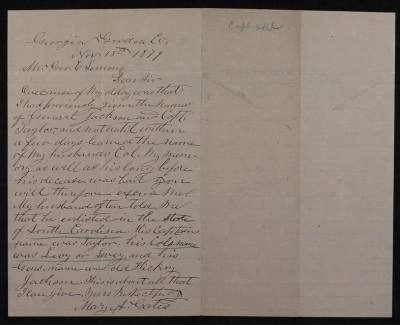 Georgia Gordon Co,
Nov 18th 1879
Mr. Geo. E. Lemons
Dear Sir
One cause of My delay was that
I had previously given the names
of General Jackson and Capt.
Taylor, and not until within a
few days learned the name
of My husbands Col. My mem-
ory as well as his long before
his decease was bad. You
will therefore excuse Me.
My husband often told Me
that he enlisted in the State
of South Carolina. His Captains
name was Taylor, his Cols name
was Levy or and his
Genls. name was old Hickry
Jackson. This is about all that
I can give. Yours Respectfuly
Mary A.
Capt